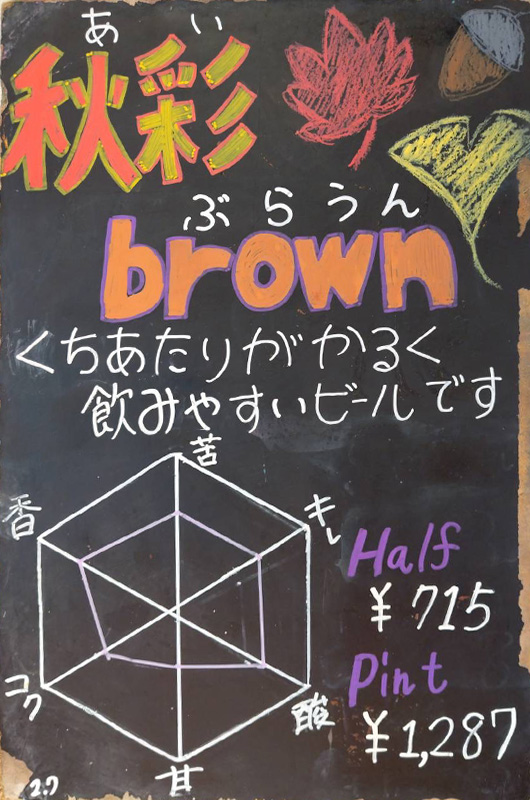 あい
秋彩
ぶらうん
brown
くちあたりがかるく
飲みやすいビールです
苦
香
キレ
Half
¥715
コク
酸
Pint
¥1,287
甘
2.7